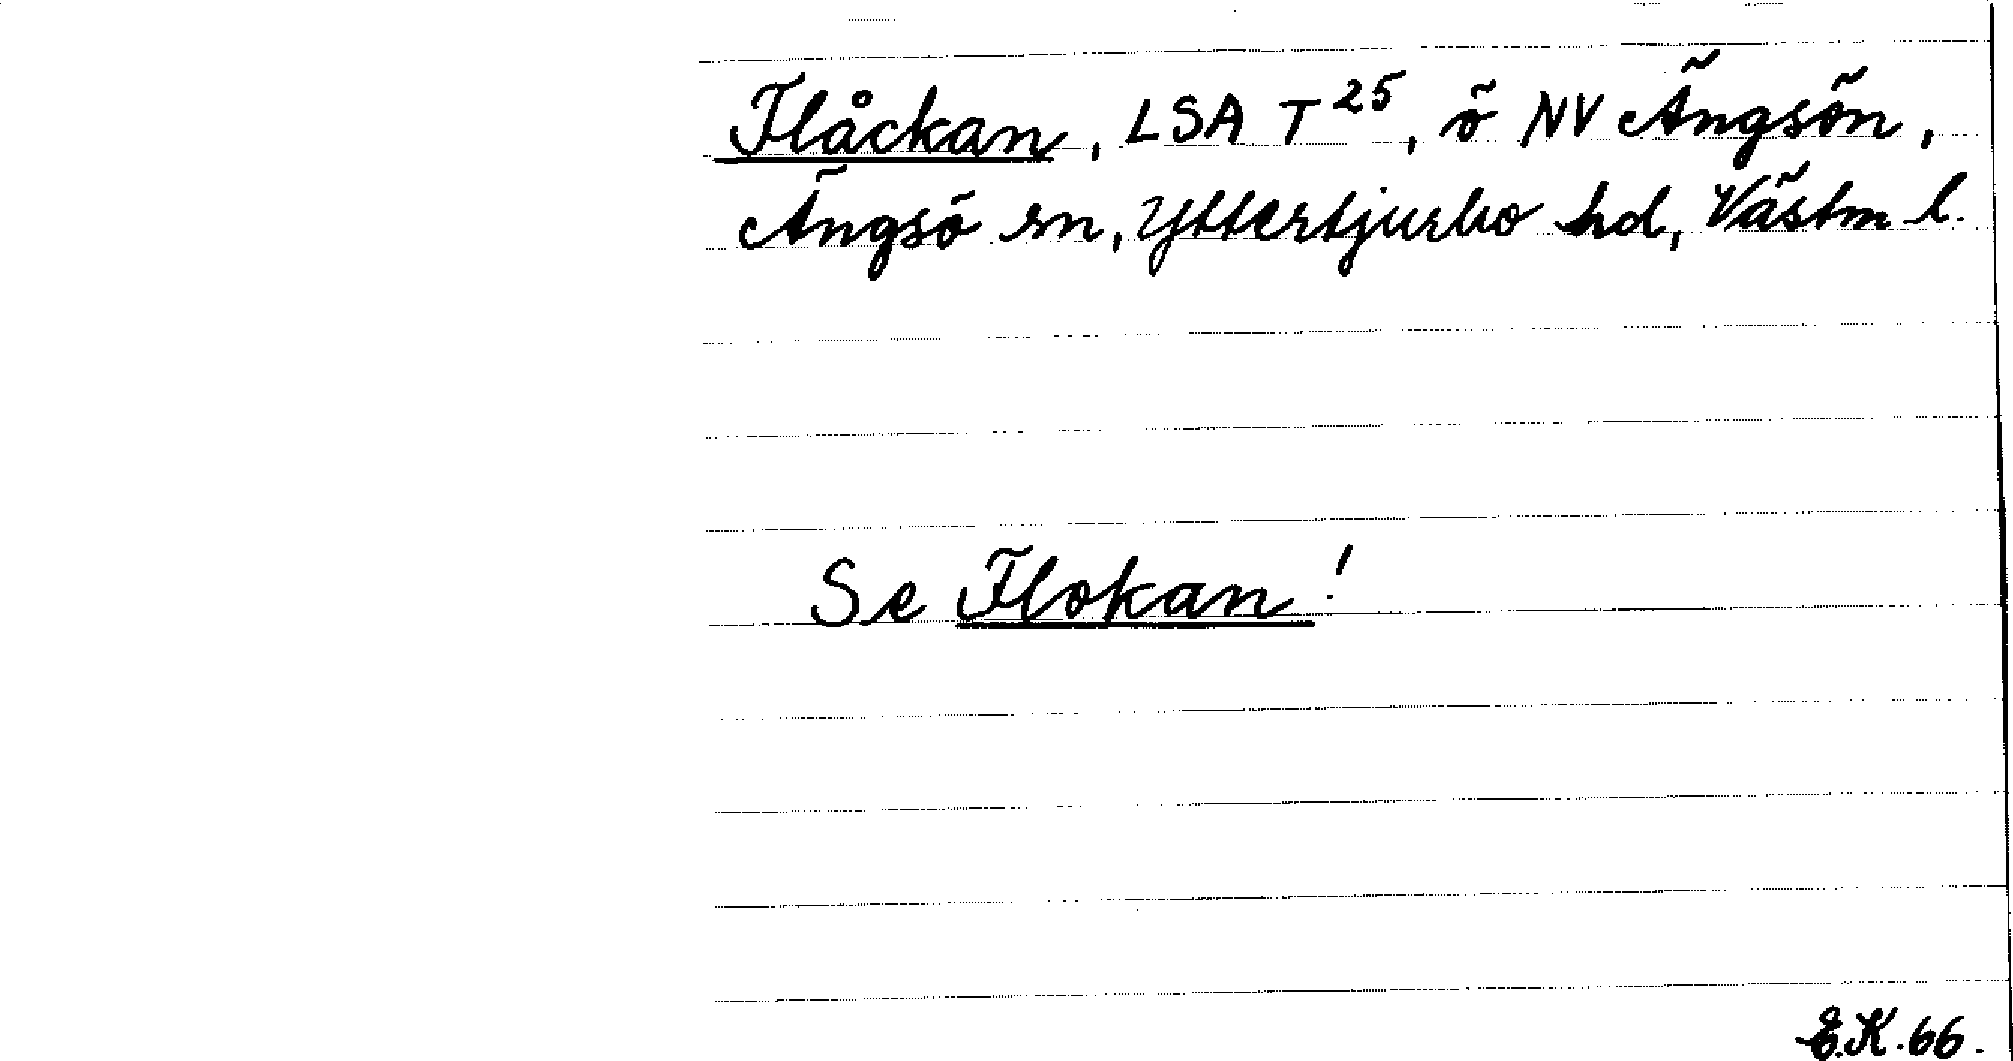 Flåckan, LSA T25, ö NV Ängsön,
Ängsö sn, Yttertjurbo hd, Västm l.
Se Flokan!
E.K. 66.